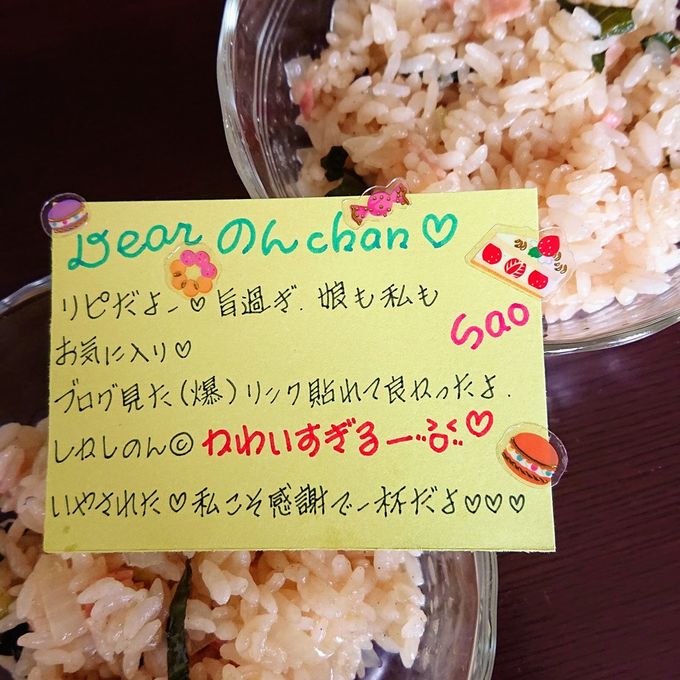 Dear のんchan♡
リピだよー♡旨過ぎ.娘も私も
お気に入り♡
Sao
ブログ見た(爆)リンク貼れて良かったよ.
しかしのん©かわいすぎるー♡
いやされた♡私こそ感謝で一杯だよ♡♡♡